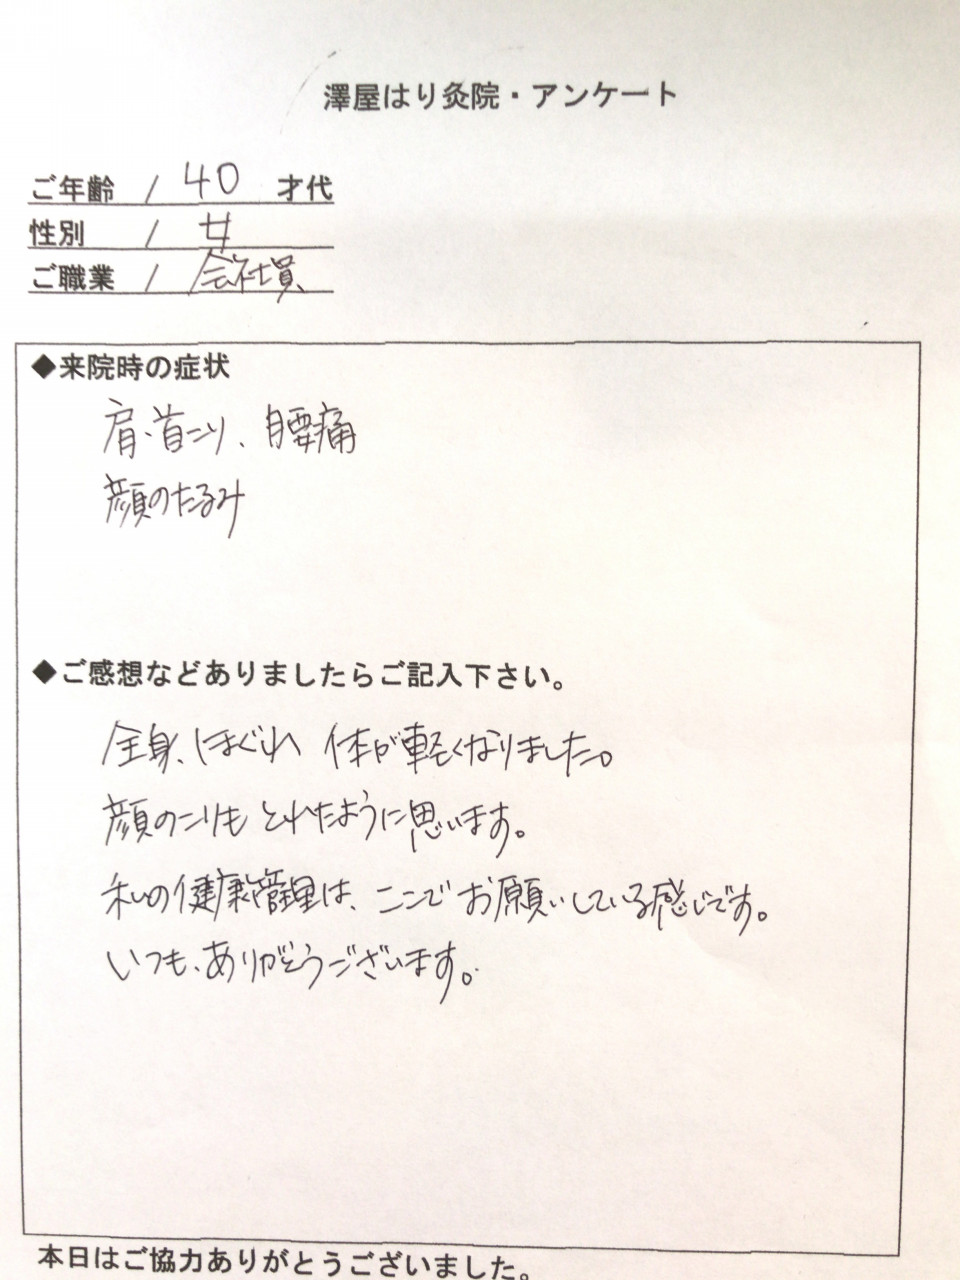 澤屋はり灸院・アンケート
ご年齢 / 40 才代
性別 / 女
ご職業 / 会社員
◆来院時の症状
肩・首こり、腰痛
顔のたるみ
◆ご感想などありましたらご記入下さい。
全身、ほぐれ 体が軽くなりました。
顔のこりも とれたように思います。
私の健康管理は、ここでお願いしている感じです。
いつも、ありがとうございます。
本日はご協力ありがとうございました。